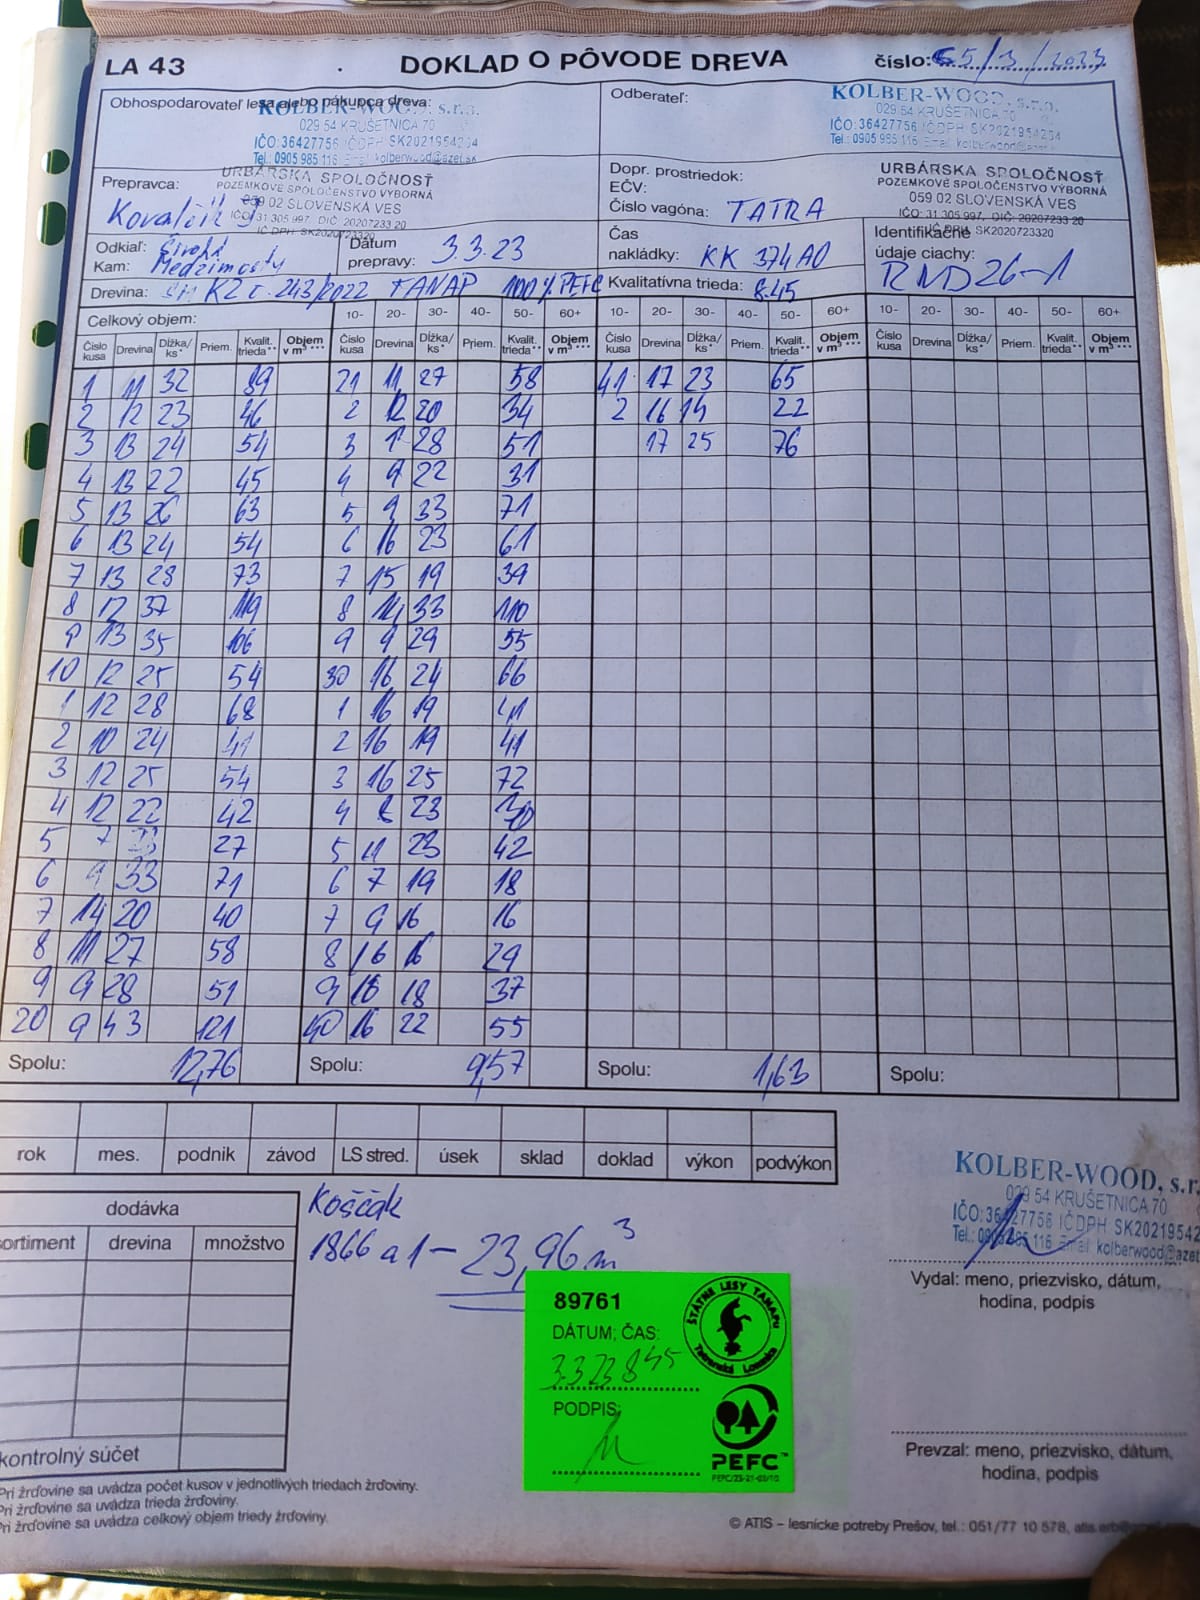 LA 43 DOKLAD O PÔVODE DREVA číslo: 65/3/2023
Obhospodarovateľ lesa alebo nákupca dreva:
KOLBER-WOOD, s.r.o.
029 54 KRUŠETNICA 70
IČO:36427756 IČDPH SK2021954234
Tel.: 0905 985 116 Email kolberwood@azet.sk
Odberateľ:
KOLBER-WOOD, s.r.o.
029 54 KRUŠETNICA 70
IČO:36427756 IČDPH SK2021954234
Tel.: 0905 985 116 Email kolberwood@azet.sk
URBÁRSKA SPOLOČNOSŤ
POZEMKOVÉ SPOLOČENSTVO VÝBORNÁ
059 02 SLOVENSKÁ VES
IČO: 31 305 997, DIČ: 2020723320
IČ DPH: SK2020723320
Prepravca: Kovalčík
Dopr. prostriedok:
EČV:
Číslo vagóna: TATRA
URBÁRSKA SPOLOČNOSŤ
POZEMKOVÉ SPOLOČENSTVO VÝBORNÁ
059 02 SLOVENSKÁ VES
IČO: 31 305 997, DIČ: 20207233 20
IČ DPH: SK2020723320
Odkiaľ: Široká
Kam: Medzimosty
Dátum prepravy: 3.3.23
Čas nakládky: KK 374 AO
Identifikačné údaje ciachy: RND26-1
Drevina: SM KZ č. 243/2022 TANAP 100% PEFC
Kvalitatívna trieda: 8.45
Celkový objem: 10- 20- 30- 40- 50- 60+ 10- 20- 30- 40- 50- 60+ 10- 20- 30- 40- 50- 60+
Číslo kusa Drevina Dĺžka/ks* Priem. Kvalit. trieda** Objem v m³ *** Číslo kusa Drevina Dĺžka/ks* Priem. Kvalit. trieda** Objem v m³ *** Číslo kusa Drevina Dĺžka/ks* Priem. Kvalit. trieda** Objem v m³ *** Číslo kusa Drevina Dĺžka/ks* Priem. Kvalit. trieda** Objem v m³ ***
1 11 32 89 21 11 27 58 41 17 23 65
2 12 23 46 2 12 20 34 2 16 14 22
3 13 24 54 3 28 51 17 25 76
4 13 22 45 4 9 22 31
5 13 26 63 5 9 33 71
6 13 24 54 6 16 23 61
7 13 28 73 7 15 19 39
8 12 37 119 8 14 33 110
9 13 35 106 9 9 29 55
10 12 25 54 30 16 24 66
1 12 28 68 1 16 19 41
2 10 24 41 2 16 19 41
3 12 25 54 3 16 25 72
4 12 22 42 4 8 23
5 7 27 5 11 23 42
6 9 33 71 6 7 19 18
7 14 20 40 7 9 16 16
8 11 27 58 8 16 16 29
9 9 28 51 9 16 18 37
20 9 43 121 40 16 22 55
Spolu: 12,76 Spolu: 9,57 Spolu: 1,63 Spolu:
rok mes. podnik závod LS stred. úsek sklad doklad výkon podvýkon
dodávka
sortiment drevina množstvo
kontrolný súčet
Koščák
1866 a 1 – 23,96 m³
89761
DÁTUM; ČAS:
3.3.23 845
PODPIS:
ŠTÁTNE LESY TANAPU
Tatranská Lomnica
PEFC™
PEFC/23-21-03/10
KOLBER-WOOD, s.r.
029 54 KRUŠETNICA 70
IČO:36427756 IČDPH SK20219542
Tel.: 0905 985 116 Email kolberwood@azet
Vydal: meno, priezvisko, dátum,
hodina, podpis
Prevzal: meno, priezvisko, dátum,
hodina, podpis
Pri žrďovine sa uvádza počet kusov v jednotlivých triedach žrďoviny.
Pri žrďovine sa uvádza trieda žrďoviny.
Pri žrďovine sa uvádza celkový objem triedy žrďoviny.
© ATIS – lesnícke potreby Prešov, tel.: 051/77 10 578, atis.erb@